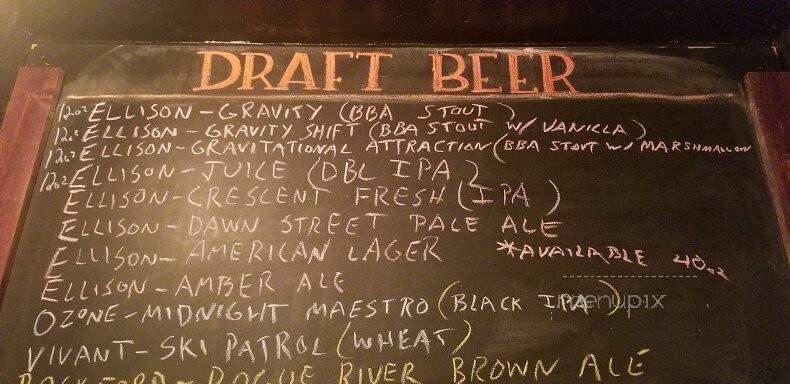 DRAFT BEER
12oz ELLISON - GRAVITY (BBA STOUT)
12oz ELLISON - GRAVITY SHIFT (BBA STOUT W/ VANILLA)
12oz ELLISON - GRAVITATIONAL ATTRACTION (BBA STOUT W/ MARSHMALLOW
12oz ELLISON - JUICE (DBL IPA)
ELLISON - CRESCENT FRESH (IPA)
ELLISON - DAWN STREET PALE ALE
ELLISON - AMERICAN LAGER *AVAILABLE 40oz
ELLISON - AMBER ALE
OZONE - MIDNIGHT MAESTRO (BLACK IPA)
menupix
VIVANT - SKI PATROL (WHEAT)
ROCKFORD - ROGUE RIVER BROWN ALE